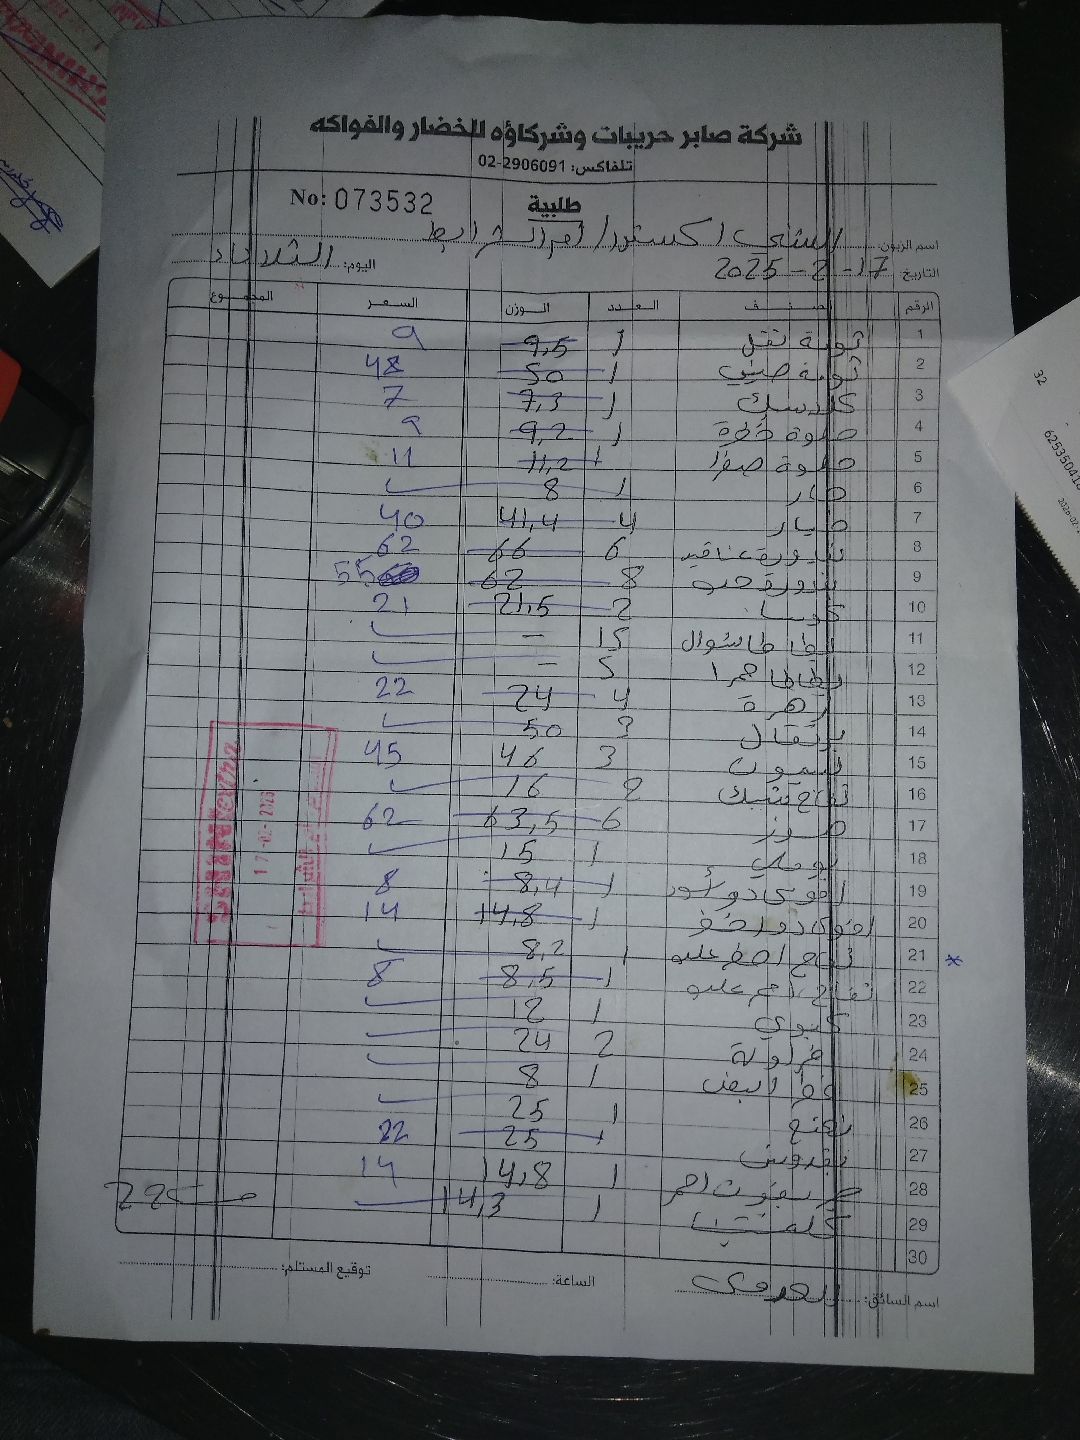 شركة صابر حريبات وشركاؤه للخضار والفواكه
تلفاكس: 02-2906091
No: 073532
طلبية
اسم الزبون: الشني اكسترا / ام الشرايط
التاريخ: 17-2-2025 اليوم: الثلاثاء
الرقم الصنف العدد الوزن السعر المجموع
1 ثومة تفل 1 9,5 9
2 ثومة صيني 1 50 48
3 كلاسيك 1 7,3 7
4 حلوة خضرة 1 9,2 9
5 حلوة صفرا 1 11,2 11
6 حار 1 8
7 خيار 4 41,4 40
8 بندورة عناقيد 6 66 62
9 بندورة حب 8 62 55
10 كوسا 2 21,5 21
11 بطاطا شوال 15 -
12 بطاطا حمرا 5 -
13 زهرة 4 24 22
14 برتقال 3 50
15 ليمون 3 46 45
16 تفاح 2 16
17 موز 6 63,5 62
18 بوملي 1 15
19 افوكادو أسود 1 8,4 8
20 افوكادو اخضر 1 14,8 14
21 تفاح اصفر علبو 1 8,2
22 تفاح احمر علبو 1 8,5 8
23 كيوي 1 12
24 فراولة 2 24
25 البيض 1 8
26 نعنع 1 25
27 بقدونس 1 25 22
28 احمر 1 14,8 14
29 كلمنتينا 1 14,3
30
22
CHINEX
17-02-2026
اسم السائق: الساعة: توقيع المستلم:
32